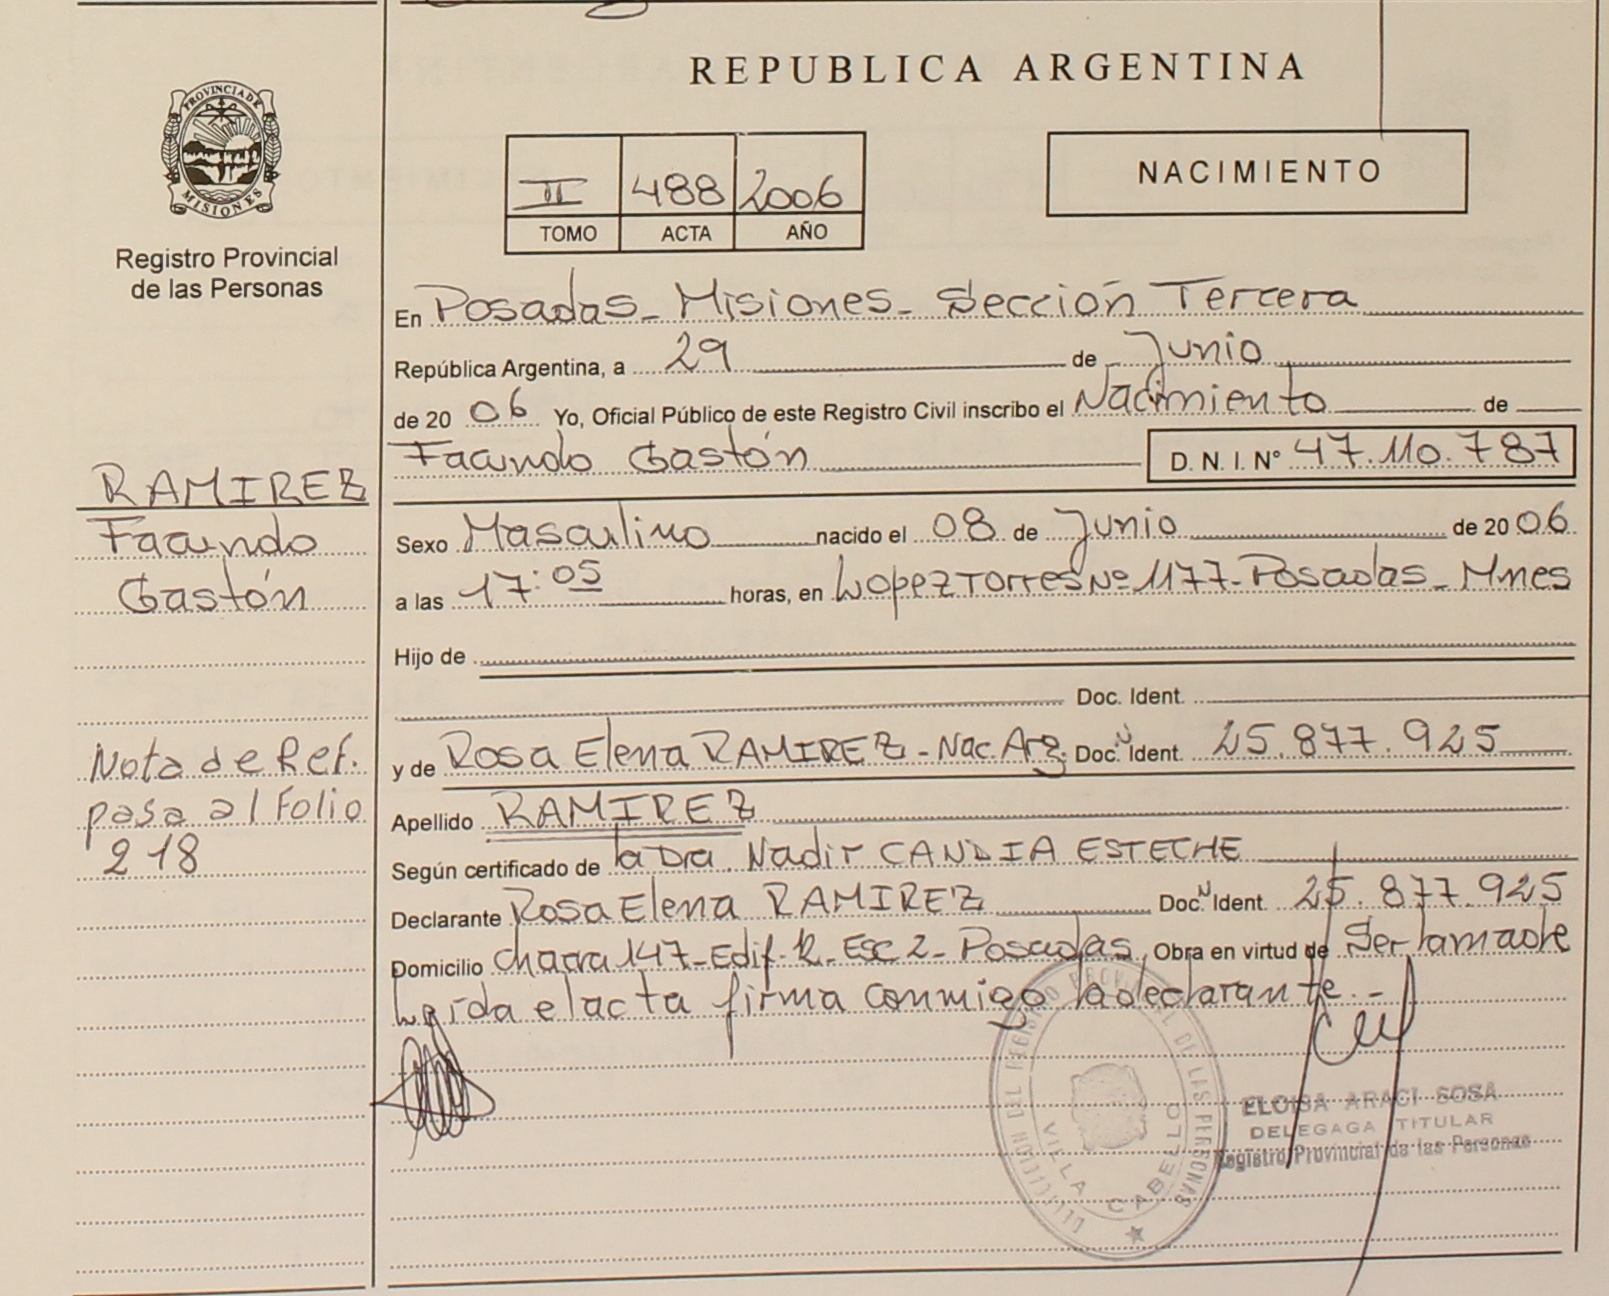 REPUBLICA ARGENTINA
PROVINCIA DE
MISIONES
Registro Provincial
de las Personas
II 488 2006
TOMO ACTA AÑO
NACIMIENTO
En Posadas - Misiones - Sección Tercera
República Argentina, a 29 de Junio
de 20 06 Yo, Oficial Público de este Registro Civil inscribo el Nacimiento de
Facundo Gastón D. N. I. Nº 47.110.787
RAMIREZ
Facundo
Gastón
Sexo Masculino nacido el 08 de Junio de 20 06
a las 17:05 horas, en Lopez Torres Nº 1177 - Posadas - Mnes
Hijo de
Doc. Ident.
y de Rosa Elena RAMIREZ - Nac. Arg. Doc. N Ident. 25.877.925
Nota de Ref.
pasa al Folio
218
Apellido RAMIREZ
Según certificado de la Dra. Nadir CANDIA ESTECHE
Declarante Rosa Elena RAMIREZ Doc. N Ident. 25.877.925
Domicilio chacra 147 - Edif. 12 - Esc 2 - Posadas, Obra en virtud de Ser la madre
Leída el acta firma conmigo la declarante. -
DELEGACION DEL REGISTRO PROVINCIAL DE LAS PERSONAS
VILLA CABELLO
ELOISA ARACI SOSA
DELEGAGA TITULAR
Registro Provincial de las Personas